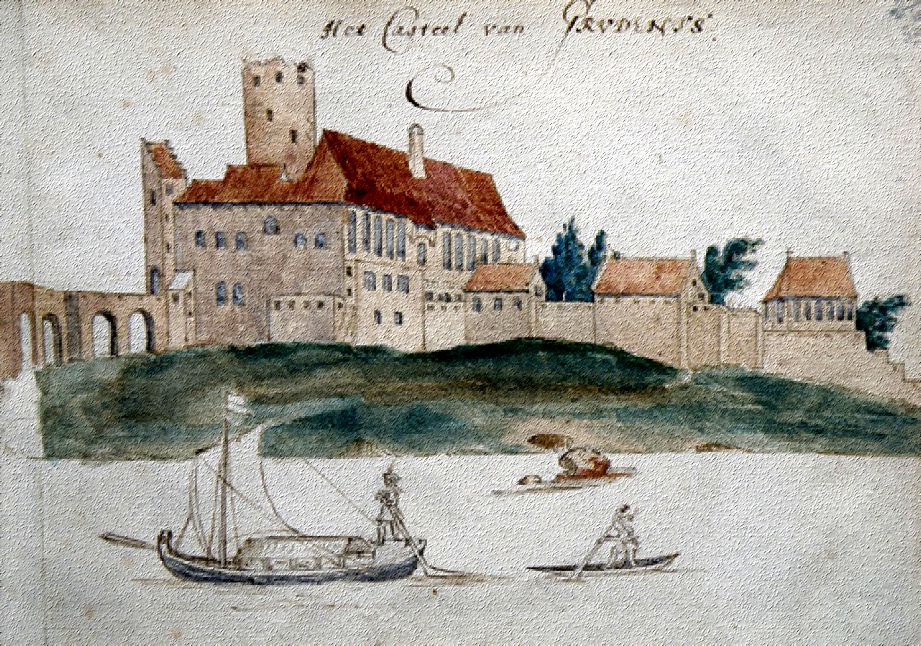 Het Casteel van GRVDENTS.